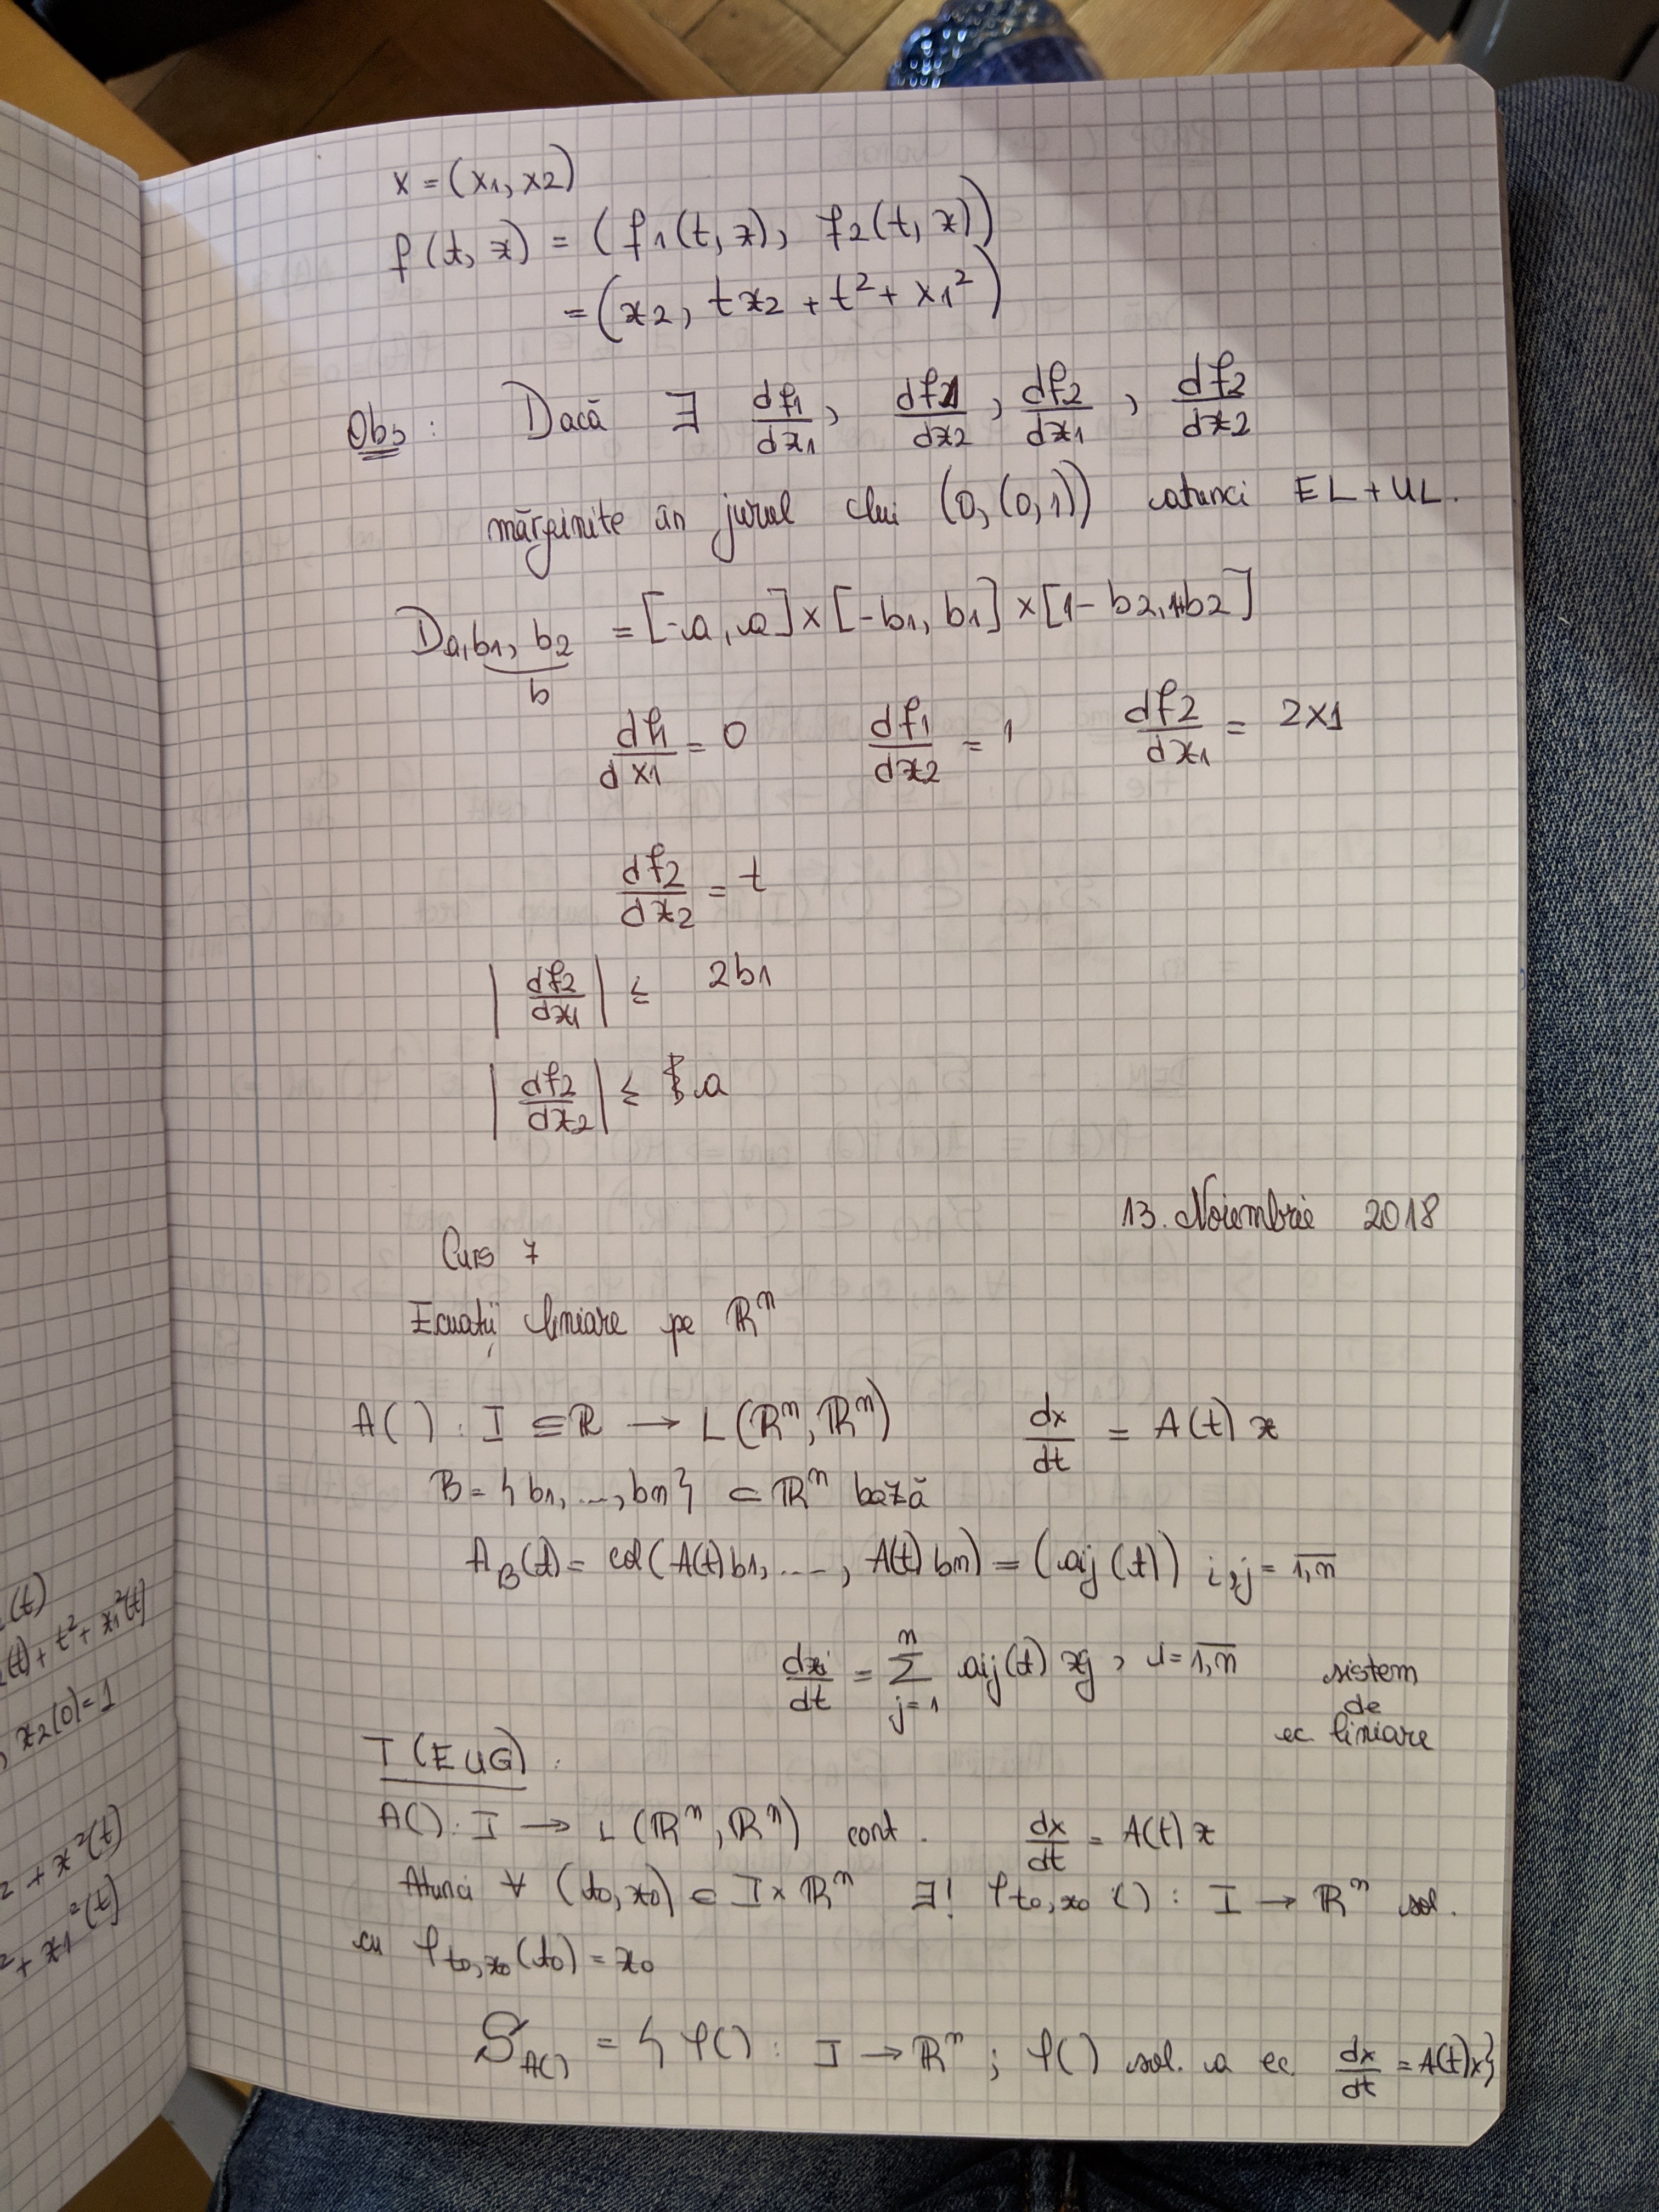 x = (x1, x2)
f(t, x) = (f1(t, x), f2(t, x))
= (x2, tx2 + t² + x1²)
Obs: Dacă ∃ df1/dx1, df1/dx2, df2/dx1, df2/dx2
mărginite în jurul lui (0, (0,1)) atunci EL + UL.
Da,b1,b2 = [-a, a] × [-b1, b1] × [1-b2, 1+b2]
b
df1/dx1 = 0 df1/dx2 = 1 df2/dx1 = 2x1
df2/dx2 = t
|df2/dx1| ≤ 2b1
|df2/dx2| ≤ a
13. Noiembrie 2018
Curs 7
Ecuații liniare pe ℝⁿ
A() : I ⊆ ℝ → L(ℝⁿ, ℝⁿ) dx/dt = A(t) x
B = {b1, ..., bn} ⊂ ℝⁿ bază
A_B(t) = col(A(t)b1, ..., A(t)bn) = (aij(t)) i,j = 1,n
dxi/dt = Σ_{j=1}^{n} aij(t) xj, i = 1,n sistem
de
ec. liniare
T(EUG):
A() : I → L(ℝⁿ, ℝⁿ) cont. dx/dt = A(t) x
Atunci ∀ (t0, x0) ∈ I × ℝⁿ ∃! φt0,x0() : I → ℝⁿ sol.
cu φt0,x0(t0) = x0
S_A() = {φ() : I → ℝⁿ ; φ() sol. a ec dx/dt = A(t)x}
(t)
(t) + t² + x1²(t)
x2(0) = 1